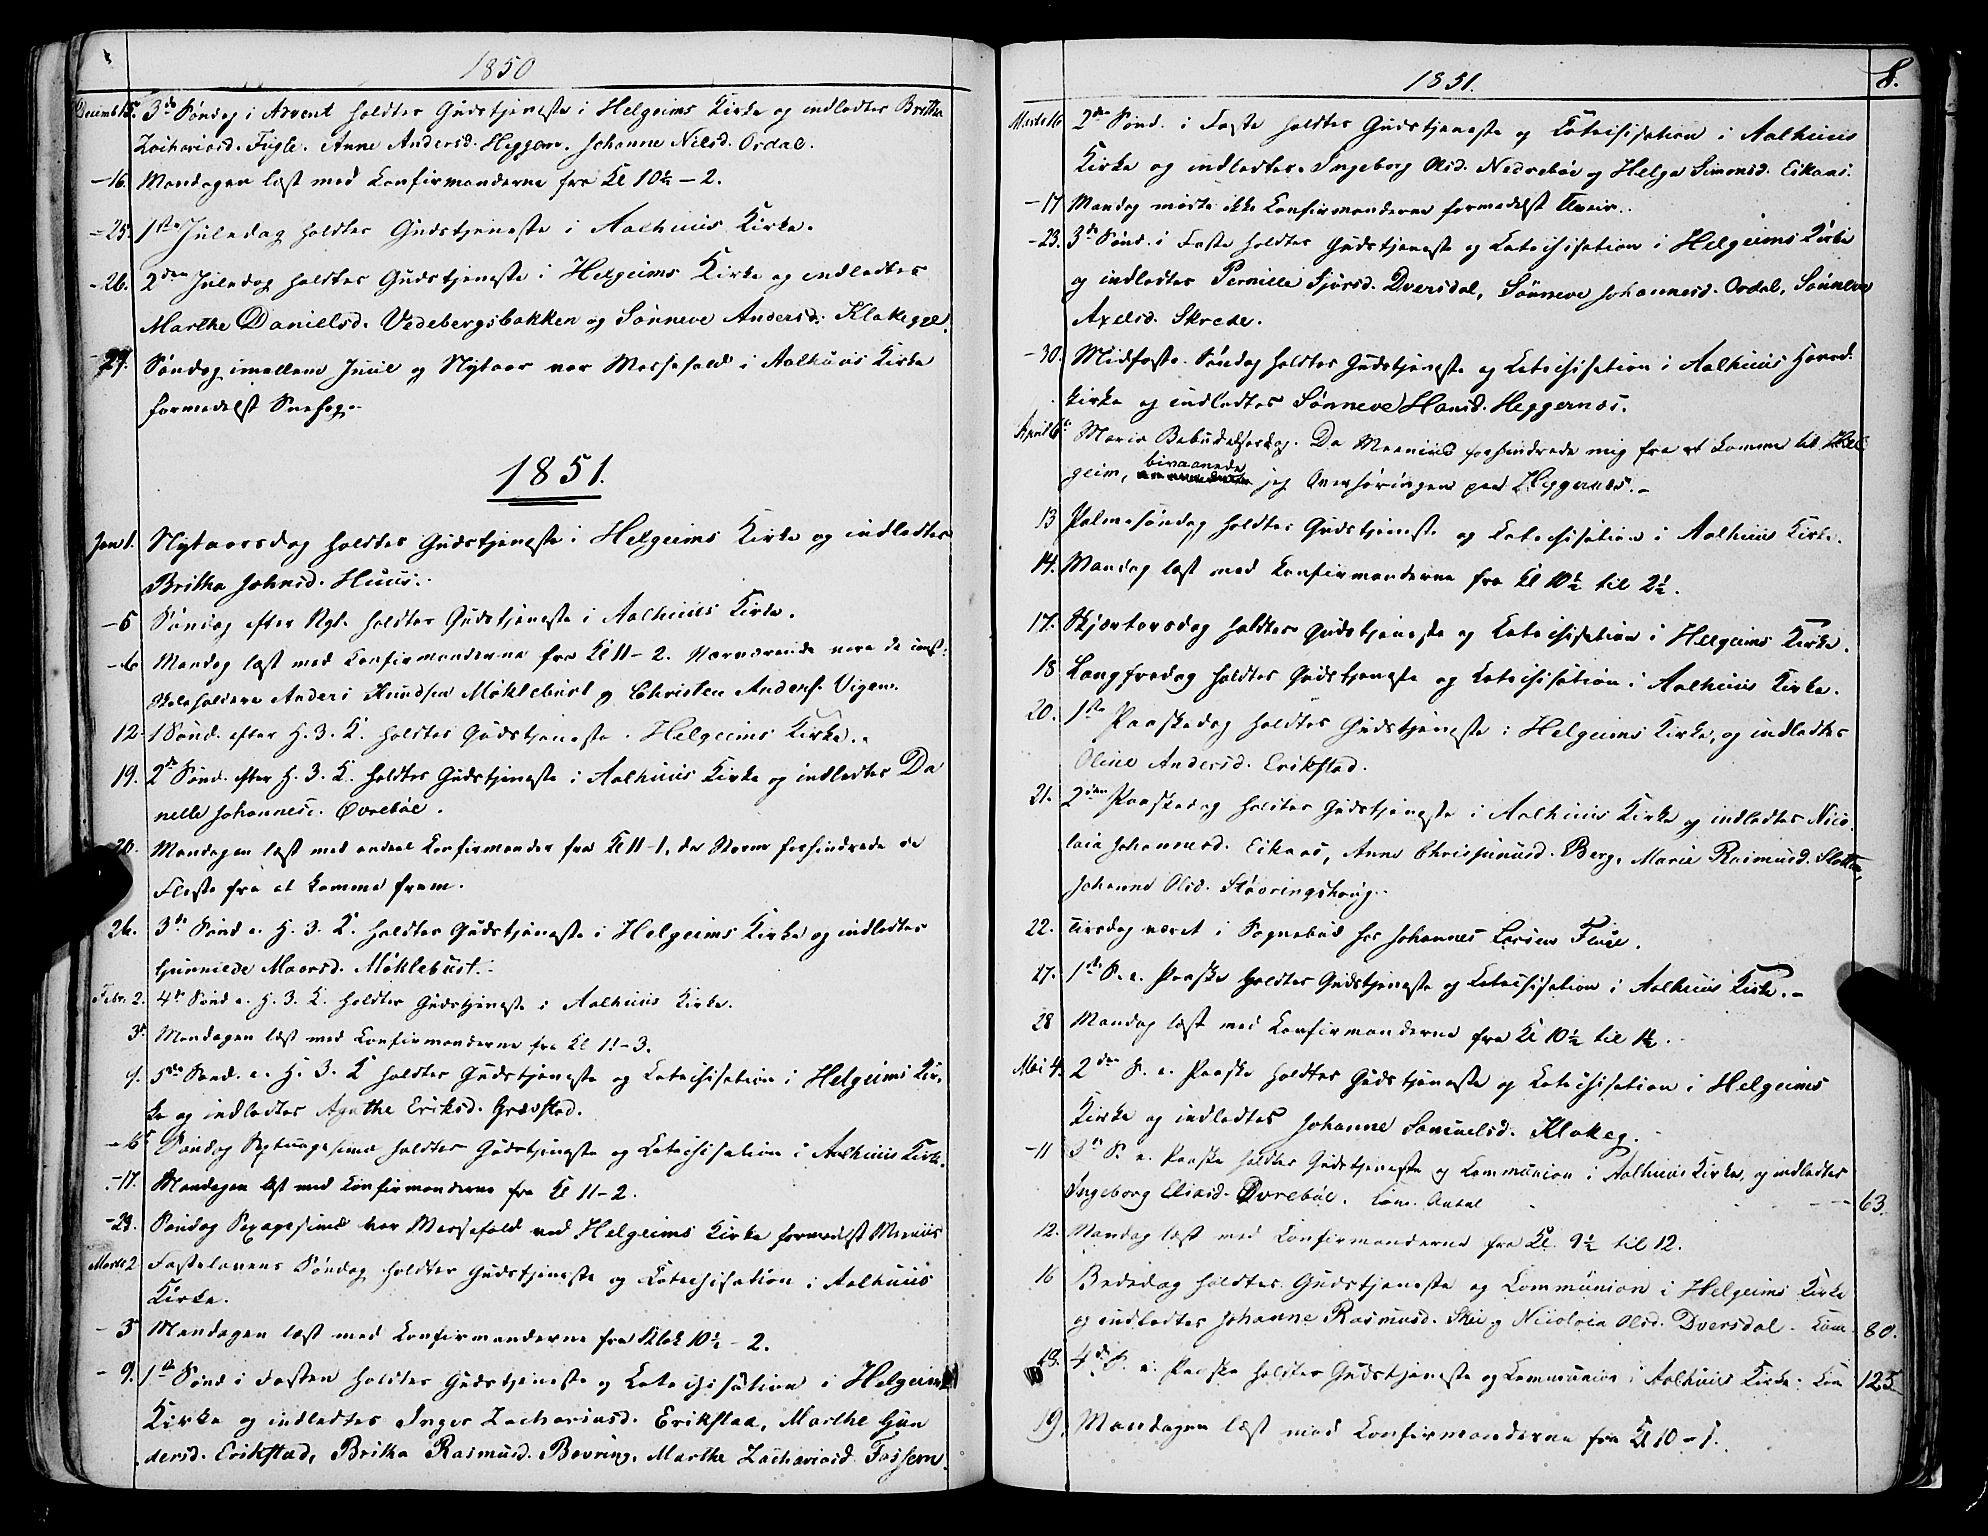 1850
Decemb 15. 3de Søndag i Advent holdtes Gudstjeneste i Helgeims Kirke og indledtes Britha
Zachariasd. Figle. Anne Andersd. Heggem. Johanne Nilsd. Ordal.
-16. Mandagen læst med Konfirmanderne fra Kl 10½-2.
-25. 1ste Juledag holdtes Gudstjeneste i Aalhuus Kirke.
-26. 2den Juledag holdtes Gudstjeneste i Helgeims Kirke og indledtes
Marthe Danielsd. Vedebergsbakken og Sønneve Andersd. Klakegge.
-29. Søndag imellem Juul og Nytaar var Messefald i Aalhuus Kirke
formedelst Snefog.-
1851.
Jan 1. Nytaarsdag holdtes Gudstjeneste i Helgeims Kirke og indledtes
Britha Johnsd. Huus.
-5 Søndag efter Nyt. holdtes Gudstjeneste i Aalhuus Kirke.
-6 Mandag læst med Konfirmanderne fra Kl 11-2. Nærværende vare de
Skoleholdere Anders Knudsen Møklebust og Christen Anders. Vigen.
12- 1 Sønd. efter H. 3. K. holdtes Gudstjeneste i Helgeims Kirke.
19. 2de Sønd. efter H. 3. K. holdtes Gudstjeneste i Aalhuus Kirke og indledtes Da
nelle Johannesd. Øvrebøe.
20. Mandagen læst med endeel Konfirmander fra Kl 11-1, da Storm forhindrede de
Fleste fra at komme frem.
26. 3de Sønd e. H. 3. K. holdtes Gudstjeneste i Helgeims Kirke og indledtes
Gunnilde Moersd. Møklebust.
Febr. 2. 4de Sønd e. H. 3. K. holdtes Gudstjeneste i Aalhuus Kirke.
3. Mandagen læst med Konfirmanderne fra Kl 11-3.
9. 5te Sønd. e. H. 3. K holdtes Gudstjeneste og Catechisation i Helgeims Kir,
ke og indledtes Agathe Eriksd. Grævstad.
-16 Søndag Septuagesima holdtes Gudstjeneste og Catechisation i Aalhuus Kirke.
-17. Mandagen læst med Konfirmanderne fra Kl 11-2.
-23. Søndag Sexagesima var Messefald ved Helgeims Kirke formedelst Meeniis
Marts 2 Fastelavens Søndag holdtes Gudstjeneste og Catechisation i Aalhuus
Kirke.
-3 Mandagen læst med Konfirmanderne fra Klok 10½-2.
-9. 1ste Sønd i Fasten holdtes Gudstjeneste og Catechisation i Helgeims
Kirke og indledtes Inger Zachariasd. Erikstad, Marthe Gun
dersd. Erikstad, Britha Rasmusd. Bovring, Marthe Zachariasd Fossem.
1851. 8.
Marts 16 2den Sønd. i Faste holdtes Gudstjeneste og Catechisation i Aalhuus
Kirke og indledtes Ingeborg Olsd. Nedrebøe og Helga Simonsd. Eikaas.
-17 Mandag mødte ikke Konfirmanderne formedelst Uveir.
-23. 3de Sønd. i Faste holdtes Gudstjeneste og Catechisation i Helgeims Kirke
og indledtes Pernille Sjursd. Dversdal, Sønneve Johannesd. Ordal, Sønneve
Axelsd. Skrede.
-30. Midfaste Søndag holdtes Gudstjeneste og Catechisation i Aalhuus Hoved
kirke og indledtes Sønneve Hansd. Heggernæs.
April 6te Maria Bebudelsesdag. Da Meeniis forhindrede mig fra at komme til Hel
geim, bivaanede jeg Overhøringen paa Heggernæs.-
13 Palmesøndag holdtes Gudstjeneste og Catechisation i Aalhuus Kirke.
14. Mandag læst med Konfirmanderne fra Kl 10½ til 2½.
17. Skjærtorsdag holdtes Gudstjeneste og Catechisation i Helgeims Kirke.
18 Langfredag holdtes Gudstjeneste og Catechisation i Aalhuus Kirke.
20. 1ste Paaskedag holdtes Gudstjeneste i Helgeims Kirke, og indledtes
Oline Andersd. Erikstad.
21. 2den Paaskedag holdtes Gudstjeneste i Aalhuus Kirke og indledtes Nico
laia Johannesd. Eikaas, Anne Berg, Marie Rasmusd. Slotten,
Johanne Olsd. Støvringshaug.
22. Tirsdag været i Sognebud hos Johannes Larsen Fluge.
27. 1ste S. e. Paaske holdtes Gudstjeneste og Catechisation i Aalhuus Kirke.-
28 Mandag læst med Konfirmanderne fra Kl 10½ til 1½.
Mai 4. 2den S. e. Paaske holdtes Gudstjeneste og Catechisation i Helgeims
Kirke og indledtes Johanne Samuelsd. Klakeg.
-11 3de S. e. Paaske holdtes Gudstjeneste og Communion i Aalhuus Kirke, og indledtes
Ingeborg Eliasd. Øvrebøe. Com. Antal 63.
12. Mandag læst med Konfirmanderne fra Kl. 9½ til 12.
16 Bededag holdtes Gudstjeneste og Communion i Helgeims Kirke
og indledtes Johanne Rasmusd. Skei og Nicolaia Olsd. Dversdal. Com. 80.
18. 4de S. e. Paaske holdtes Gudstjeneste og Communion i Aalhuus Kirke. Com 125.
19. Mandagen læst med Konfirmanderne fra Kl 10-1.